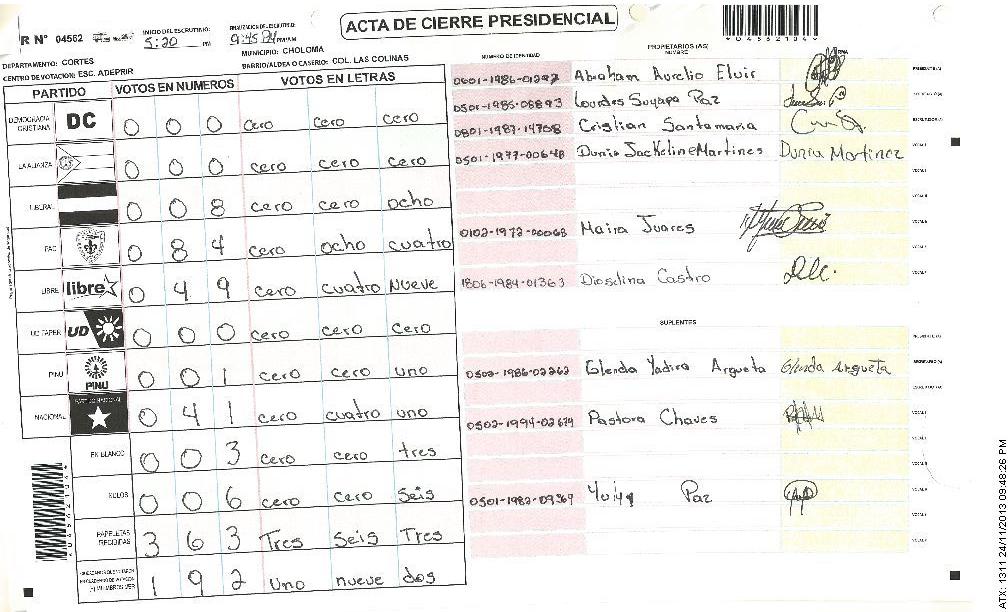 ACTA DE CIERRE PRESIDENCIAL
R N° 04562
INICIO DEL ESCRUTINIO: 5:20 PM
FINALIZACION DEL ESCRUTINIO: 9:45 PM/AM
*04562104*
DEPARTAMENTO: CORTES
MUNICIPIO: CHOLOMA
CENTRO DE VOTACION: ESC. ADEPRIR
BARRIO/ALDEA O CASERIO: COL. LAS COLINAS
PARTIDO VOTOS EN NUMEROS VOTOS EN LETRAS
DEMOCRACIA CRISTIANA DC 0 0 0 cero cero cero
LA ALIANZA 0 0 0 cero cero cero
LIBERAL 0 0 8 cero cero ocho
PAC 0 8 4 cero ocho cuatro
LIBRE libre 0 4 9 cero cuatro Nueve
UD FAPER UD 0 0 0 Cero Cero Cero
PINU PINU 0 0 1 cero cero uno
NACIONAL PARTIDO NACIONAL 0 4 1 cero cuatro uno
EN BLANCO 0 0 3 cero cero tres
NULOS 0 0 6 cero cero Seis
PAPELETAS RECIBIDAS 3 6 3 Tres Seis Tres
1 9 2 Uno nueve dos
NUMERO DE IDENTIDAD
PROPIETARIOS (AS)
NOMBRE
FIRMA
0601-1986-01297 Abraham Aurelio Elvir PRESIDENTE (A)
0501-1985-08893 Lourdes Suyapa Paz SECRETARIO (A)
0801-1987-14708 Cristian Santamaria ESCRUTADOR (A)
0501-1977-00648 Dunia Jackeline Martines Dunia Martinez VOCAL I
0102-1972-00068 Maira Juares
1806-1984-01363 Dioselina Castro
SUPLENTES
PRESIDENTE (A)
0502-1986-02262 Glenda Yadira Argueta Glenda Argueta SECRETARIO (A)
ESCRUTADOR (A)
0502-1994-02679 Pastora Chaves
0501-1982-09369 Paz
*04562104*
ATX: 1311 24/11/2013 09:48:26 PM